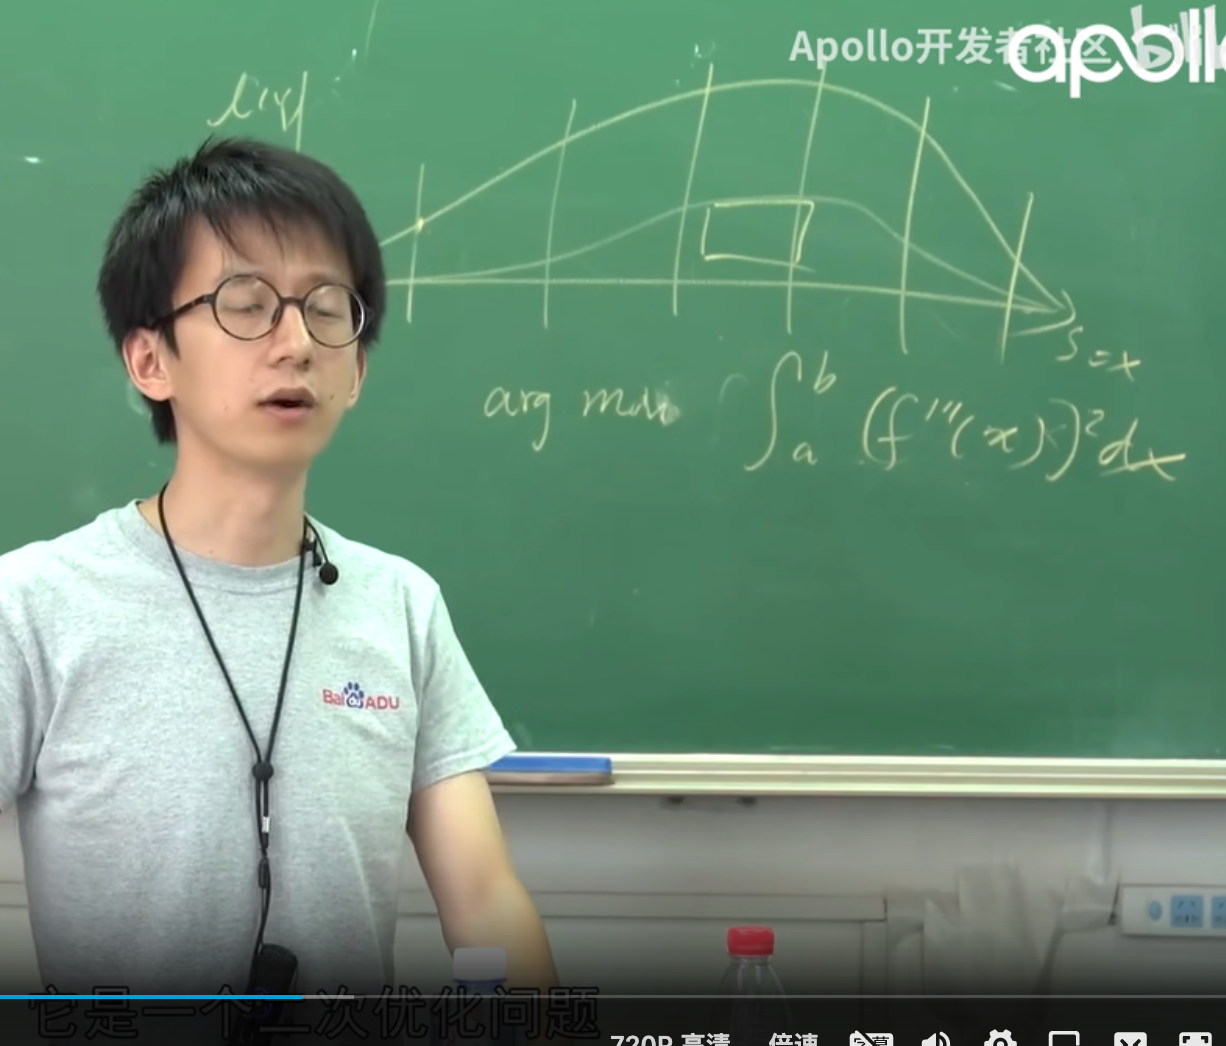 Apollo开发者社区
apoll
l(s)
S = x
arg min ∫ₐᵇ (f'''(x))² dx
Bai du ADU
它是一个二次优化问题
720P 高清 倍速